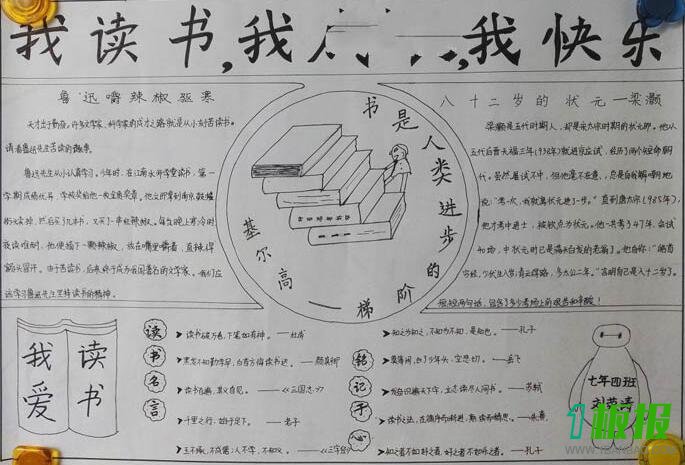 我读书,我 ,我快乐
鲁迅嚼辣椒驱寒
天才出于勤奋。许多文学家、科学家的成才之路就是从小刻苦读书。
请看鲁迅先生苦读的故事。
鲁迅先生从小认真学习。少年时,在江南水师学堂读书,第一
学期成绩优异,学校奖给他一枚金质奖章。他立即拿到南京鼓楼
街头卖掉,然后买了几本书,又买了一串红辣椒。每当晚上寒冷时
夜读难耐,他便摘下一颗辣椒,放在嘴里嚼着,直辣得
额头冒汗。由于苦读书,后来终于成为我国著名的文学家。我们应
该学习鲁迅先生
读书的精神。
书是人类进步的阶梯——高尔基
八十二岁的状元—梁灏
梁灏是五代时期人,却是宋太宗时期的状元郎。他从
五代后晋天福三年(938年)就进京应试,经历了两个短命朝
代。虽然屡试不中,但他毫不在意,总是自我解嘲地
说:"考一次,我就离状元近了一步。"直到雍熙
他才考中进士,被钦点为状元。他一共考了47年,会试
40场,中状元时已是满头白发的老翁了。他自称:"皓首
穷经,少伏生八岁;青云得路,多太公二年。"言明自己是八十二岁了。
短短两句话,包含了多少考场上的艰苦和辛酸!
我爱
读书
读书名言
读书破万卷,下笔如有神。——杜甫
黑发不知勤学早,白首方悔读书迟。——颜真卿
读书百遍,其义自见。——《三国志》
千里之行,始于足下。——老子
玉不琢,不成器;人不学,不知义。——《三字经》
铭记于心
知之为知之,不知为不知,是知也。——孔子
莫等闲,白了少年头,空悲切。——岳飞
发奋识遍天下字,立志读尽人间书。——苏轼
读书之法,在循序而渐进,熟读而精思。——朱熹
知之者不如好之者,好之者不如乐之者。——孔子
七年四班
1板报